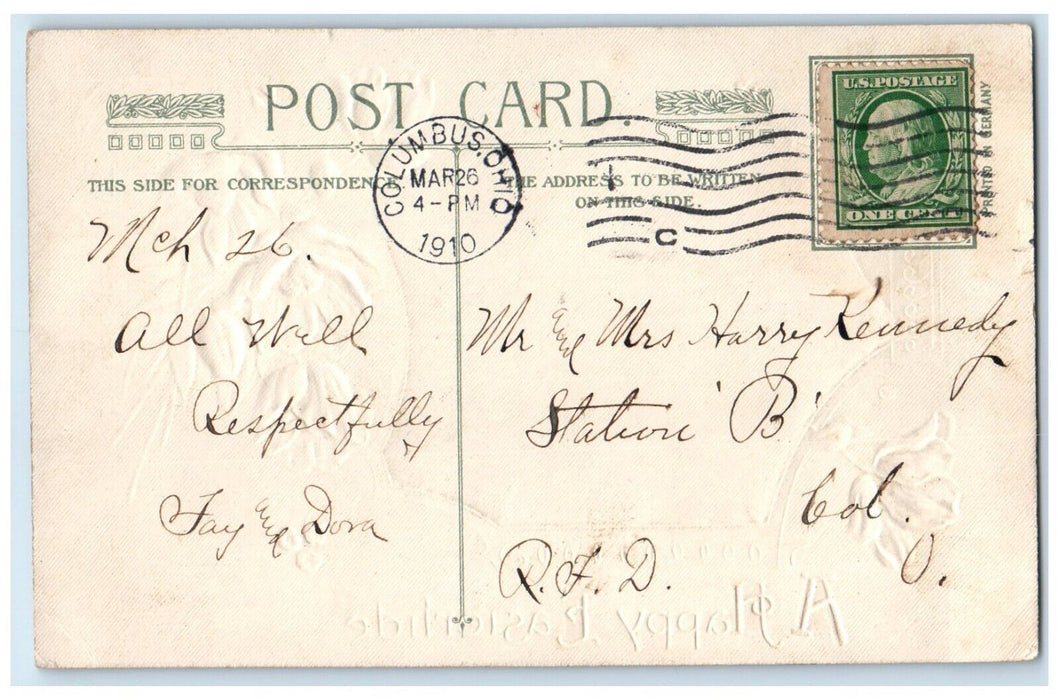 POST CARD.
THIS SIDE FOR CORRESPONDENCE
THE ADDRESS TO BE WRITTEN
ON THIS SIDE.
COLUMBUS, OHIO
MAR 26
4-PM
1910
C
U.S. POSTAGE
ONE CENT
PRINTED IN GERMANY
Mch 26.
All Well
Respectfully
Fay and Dora
Mr and Mrs Harry Kennedy
Station 'B'
Col.
R.F.D. O.
A Happy Eastertide